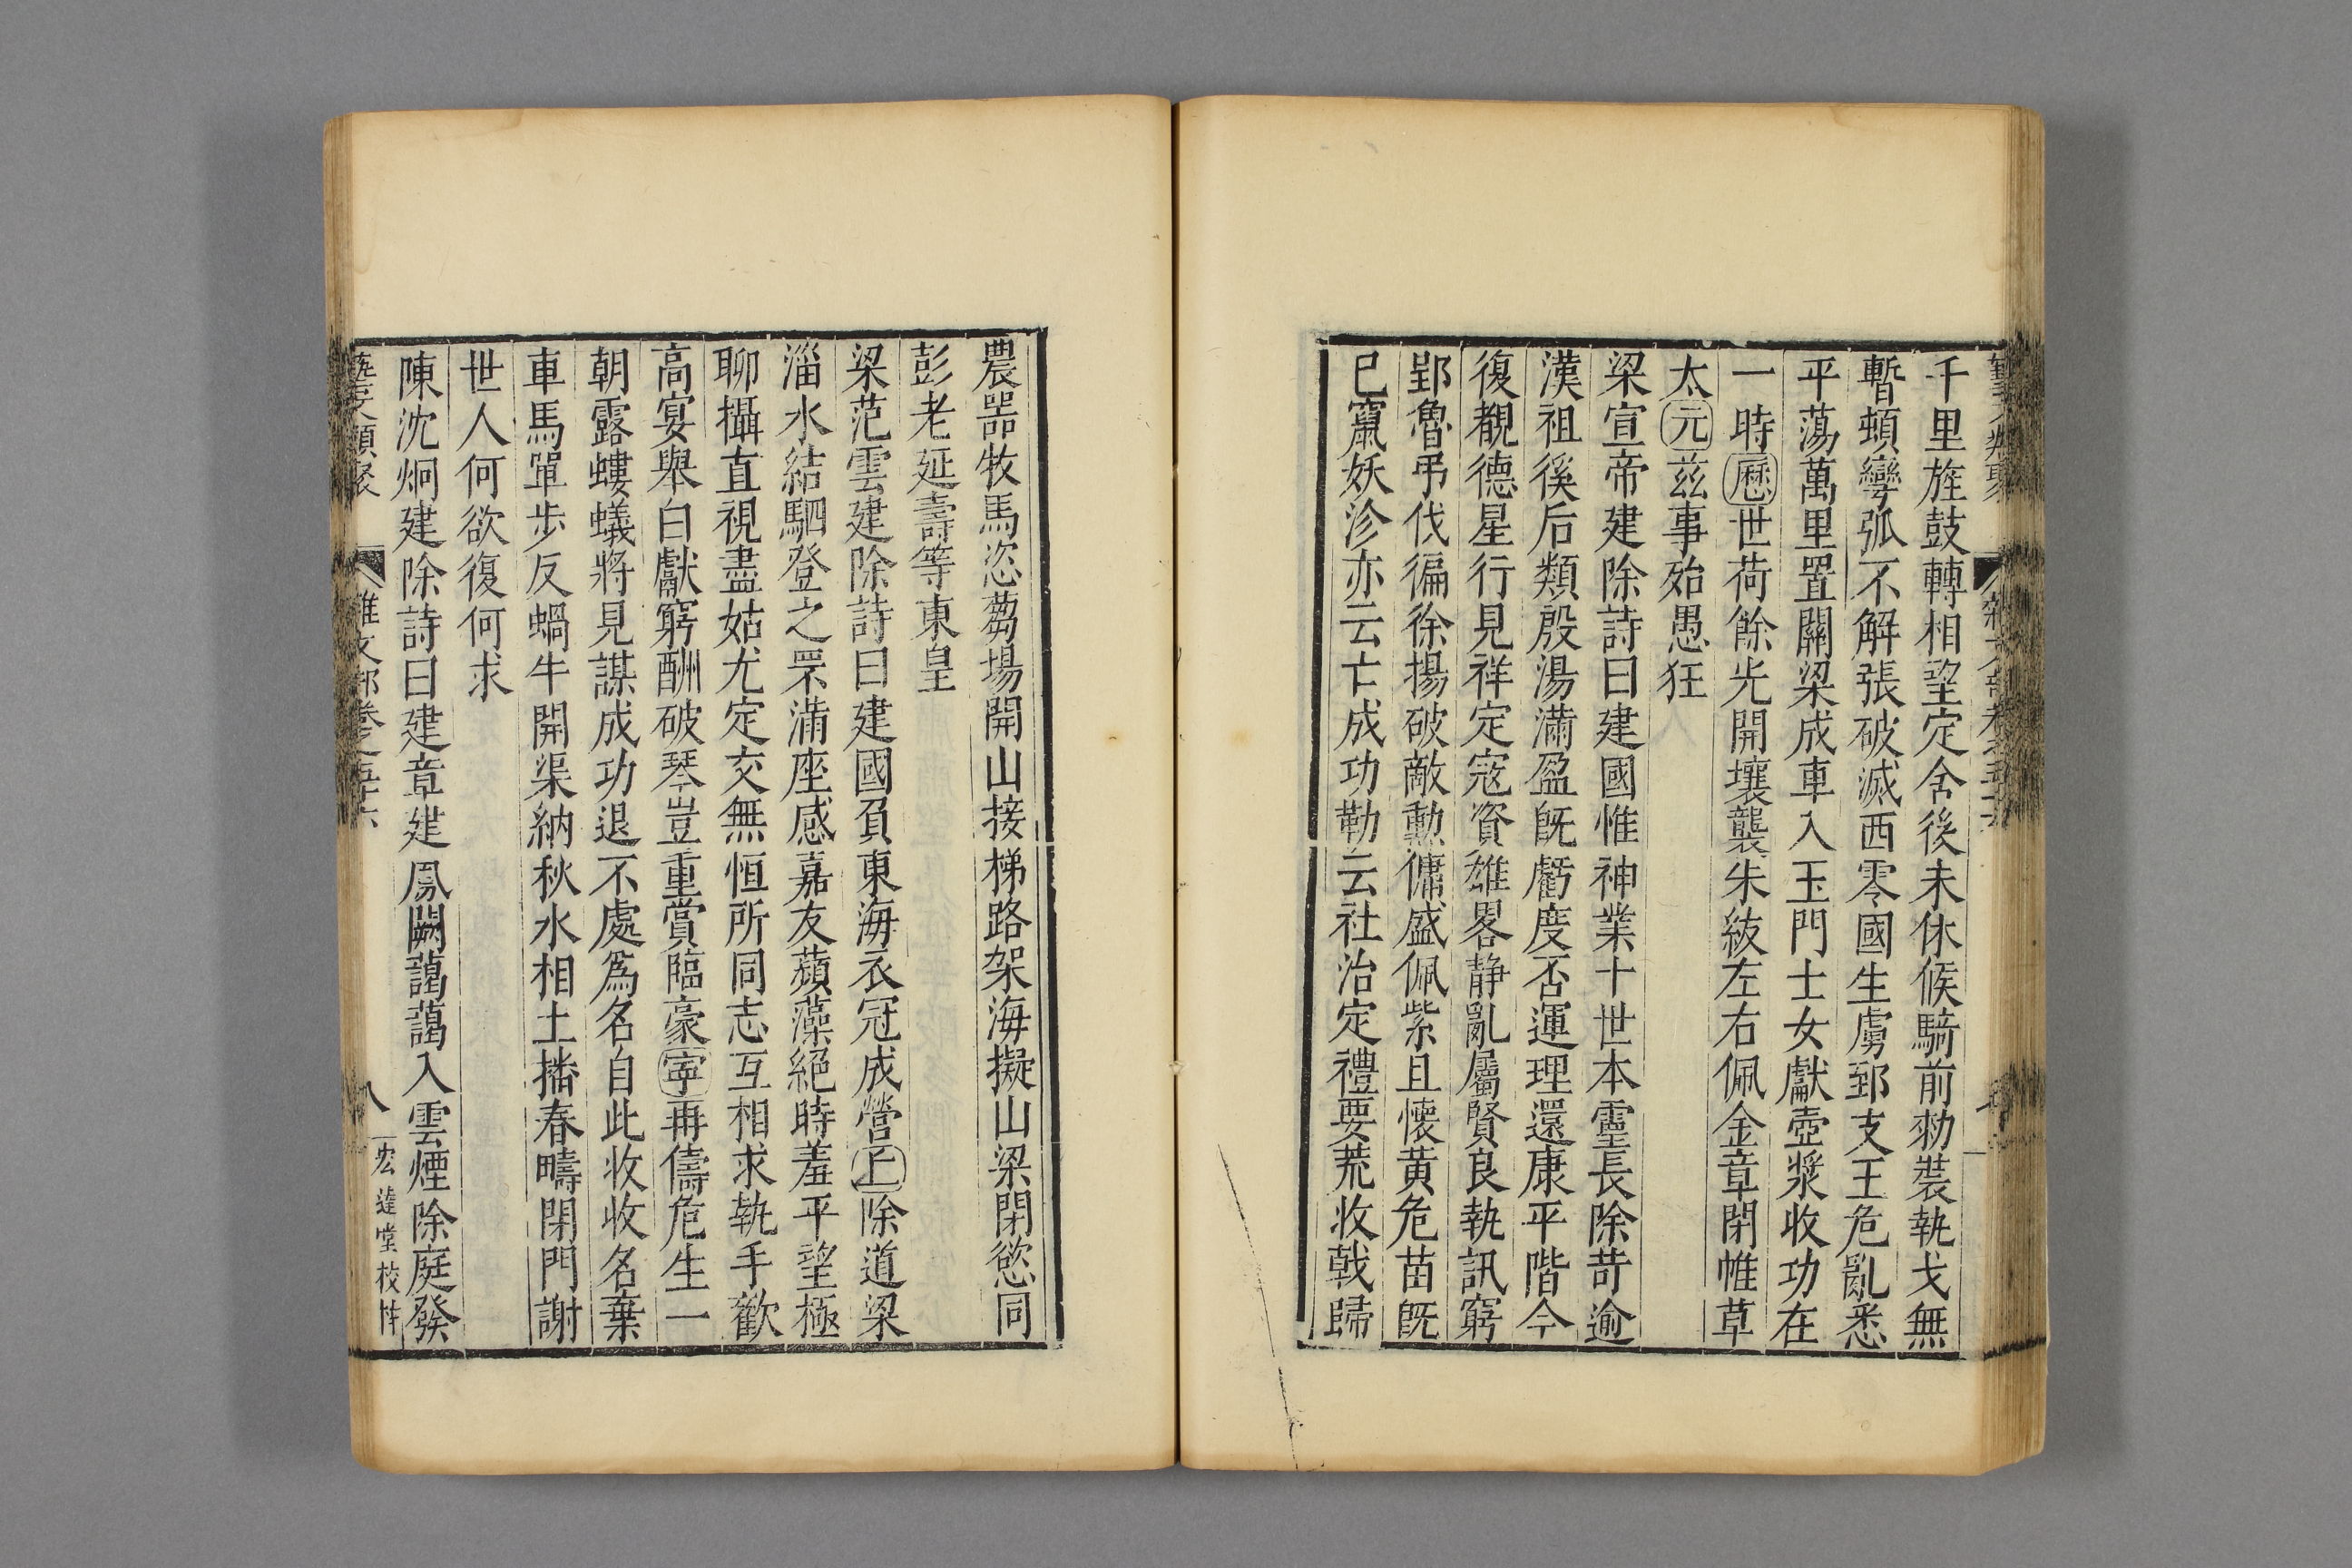 千里旌鼓轉相望定舍後未休候騎前勑裝執戈無
暫頓彎弧不解張破滅西零國生虜郅支王危亂悉
平蕩萬里置關梁成車入玉門士女獻壺漿收功在
一時歷世荷餘光開壤襲朱紱左右佩金章閉帷草
太元茲事殆愚狂
梁宣帝建除詩曰建國惟神業十世本靈長除苛逾
漢祖徯后類殷湯滿盈旣虧度否運理還康平階今
復覩德星行見祥定寇資雄畧静亂屬賢良執訊窮
郢魯弔伐徧徐揚破敵勲傭盛佩紫且懷黄危苗旣
已竄妖沴亦云亡成功勒云社治定禮要荒收戟歸
農噐牧馬恣蒭場開山接梯路架海擬山梁閉慾同
彭老延壽等東皇
梁范雲建除詩曰建國負東海衣冠成營丄除道梁
淄水結駟登之罘滿座感嘉友蘋藻絕時羞平望極
聊攝直視盡姑尤定交無恒所同志互相求執手歡
高宴舉白獻窮酬破琴豈重賞臨豪寕再儔危生一
朝露螻蟻將見謀成功退不處爲名自此收收名棄
車馬單步反蝸牛開渠納秋水相土播春疇閉門謝
世人何欲復何求
陳沈炯建除詩曰建章連鳳闕藹藹入雲煙除庭發
藝文類聚 雜文部卷之五十六 八 宏達堂校